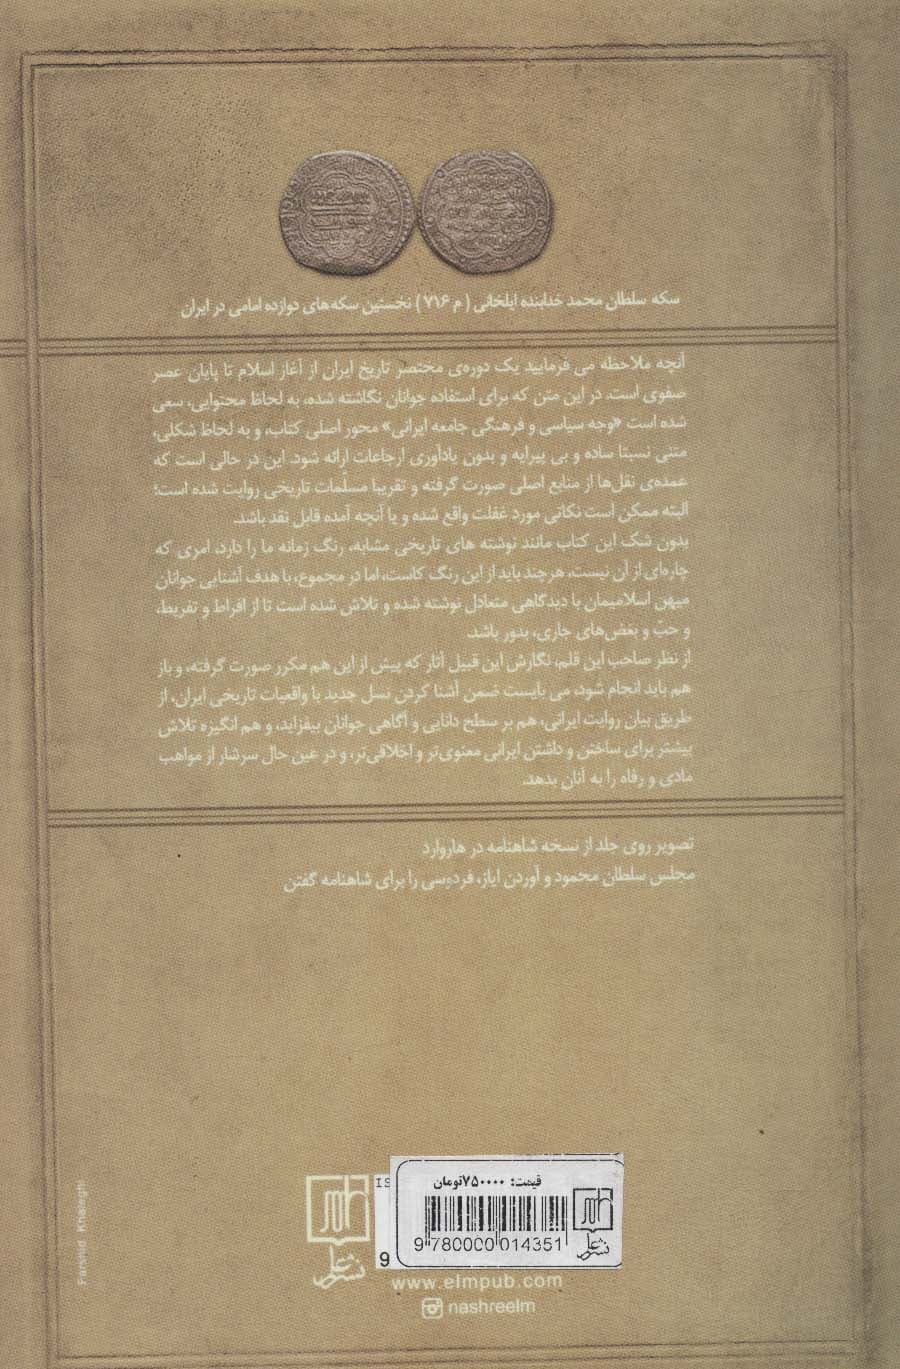 سکه سلطان محمد خدابنده ایلخانی ( م ۷۱۶ ) نخستین سکه‌های دوازده امامی در ایران
آنچه ملاحظه می فرمایید یک دوره‌ی مختصر تاریخ ایران از آغاز اسلام تا پایان عصر
صفوی است. در این متن که برای استفاده جوانان نگاشته شده، به لحاظ محتوایی، سعی
شده است «وجه سیاسی و فرهنگی جامعه ایرانی» محور اصلی کتاب، و به لحاظ شکلی،
متنی نسبتا ساده و بی پیرایه و بدون یادآوری ارجاعات ارائه شود. این در حالی است که
عمده‌ی نقل‌ها از منابع اصلی صورت گرفته و تقریبا مسلّمات تاریخی روایت شده است؛
البته ممکن است نکاتی مورد غفلت واقع شده و یا آنچه آمده قابل نقد باشد.
بدون شک این کتاب مانند نوشته های تاریخی مشابه، رنگ زمانه ما را دارد، امری که
چاره‌ای از آن نیست، هر چند باید از این رنگ کاست، اما در مجموع، با هدف آشنایی جوانان
میهن اسلامیمان با دیدگاهی متعادل نوشته شده و تلاش شده است تا از افراط و تفریط،
و حبّ و بغض‌های جاری، بدور باشد.
از نظر صاحب این قلم، نگارش این قبیل آثار که پیش از این هم مکرر صورت گرفته، و باز
هم باید انجام شود، می بایست ضمن آشنا کردن نسل جدید با واقعیات تاریخی ایران، از
طریق بیان روایت ایرانی، هم بر سطح دانایی و آگاهی جوانان بیفزاید، و هم انگیزه تلاش
بیشتر برای ساختن و داشتن ایرانی معنوی‌تر و اخلاقی‌تر، و در عین حال سرشار از مواهب
مادی و رفاه را به آنان بدهد.
تصویر روی جلد از نسخه شاهنامه در هاروارد
مجلس سلطان محمود و آوردن ایاز، فردوسی را برای شاهنامه گفتن
قیمت: ۷۵۰۰۰۰تومان
9 780000 014351
نشر علم
نشر علم
IS
9
www.elmpub.com
nashreelm